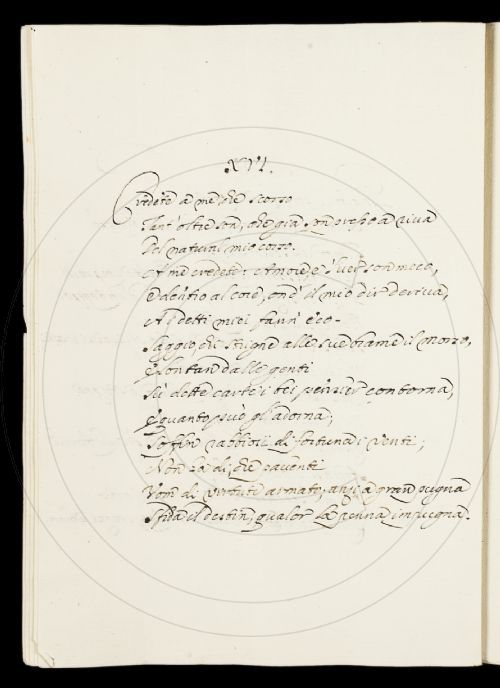 XVI.
Credete a me che scorso
Tant' oltre son, che già son presso a riva
Del natural mio corso.
A me credete: Amore, e 'l ver son meco,
E dentro al core, ond' il mio dir deriva,
A i detti miei fann' eco.
Saggio, chi strigne alle sue brame il morso,
E lontan dalle genti
Su dotte carte i bei pensier conforma,
E quanto può gl' adorna;
Soffin rabbiosi di fortuna i venti;
Non sa di che paventi
Uom di virtute armato, anzi a gran pugna
Sfida il destin, qualor la penna impugna.